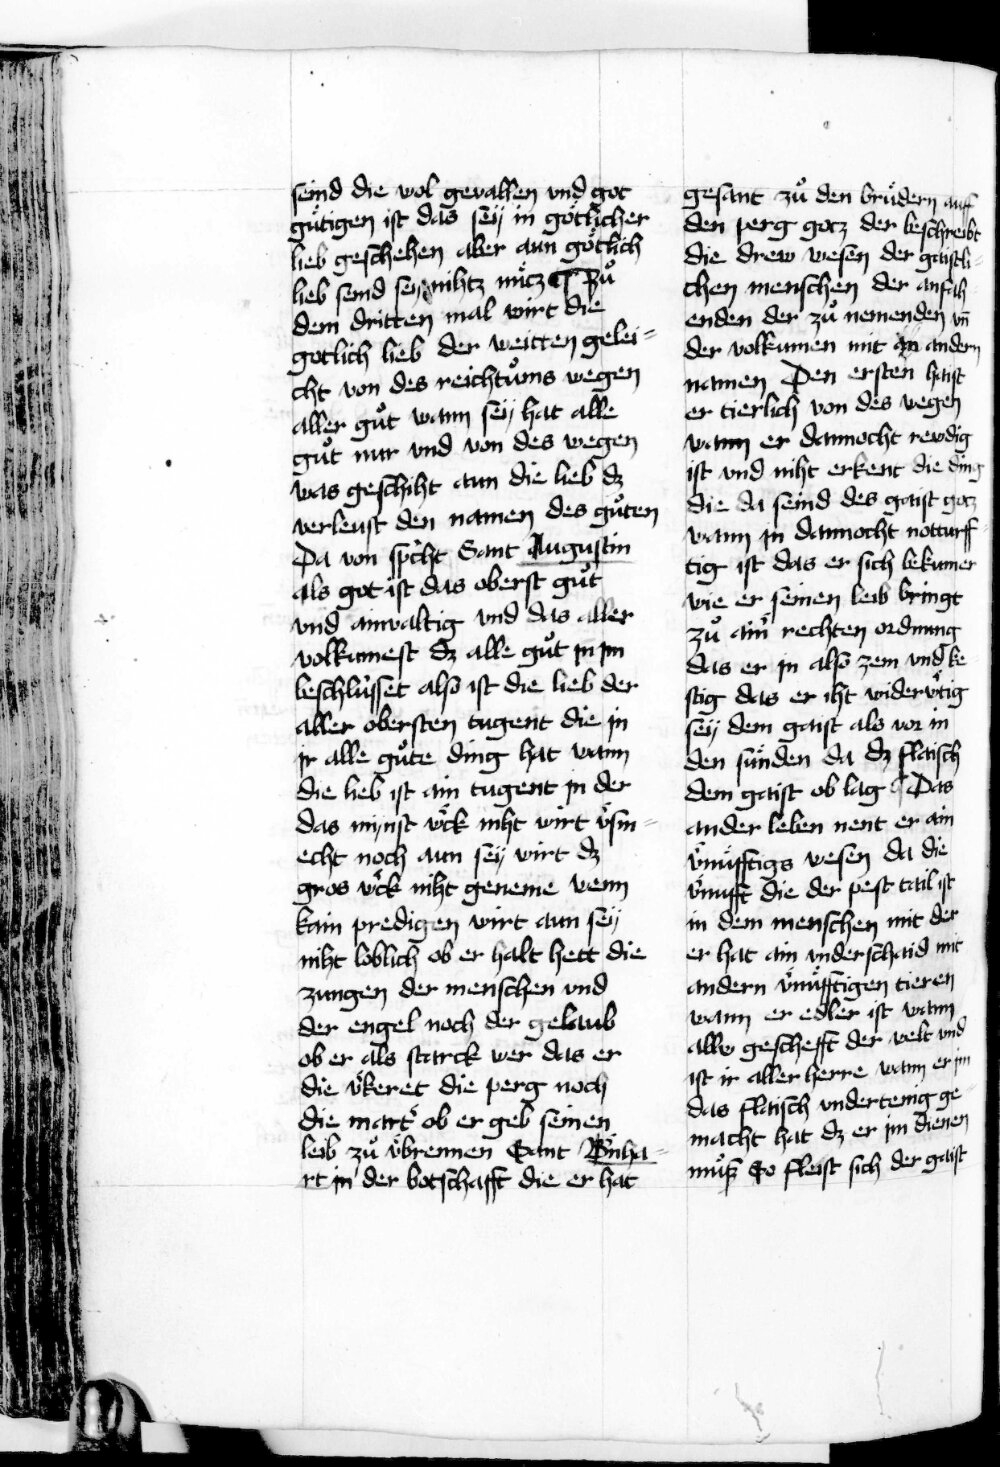 seind die wol gevallen vnd got
gütigen ist das seÿ in götlicher
lieb geschehen aber aun götlich
lieb seind seÿ nihtz nütz ¶ Zuͦ
dem dritten mal wirt die
gotlich lieb der weitten gelei=
cht von des reichtuͦms wegen
aller guͦt wann seÿ hat alle
guͦt nur vnd von des wegen
was geschiht aun die lieb dz
verleust den namen des guͦten
Da von spͥcht Sant Augustin
als got ist das oberst guͦt
vnd ainvaltig vnd das aller
volkumest dz alle guͦt in im
beschlüsset also ist die lieb der
aller obersten tugent die in
ir alle guͦte ding hat wann
die lieb ist ain tugent in der
das mÿnst w̆ck niht wirt v̆sm=
echt noch aun seÿ wirt dz
gros w̆ck niht geneme wenn
kain predigen wirt aun seÿ
niht loblich ob er halt hett die
zungen der menschen vnd
der engel noch der gelaub
ob er als starck wer das er
die v̆keret die perg noch
die mart̆ ob er geb seinen
leib zuͦ v̆brennen Sant B̆nha=
rt in der botschafft die er hat
gesant zuͦ den brüdern auff
den perg gotz der beschreibt
die drew wesen der gaistli=
chen menschen der anfah=
enden der zuͦ nemenden vn̄
der volkumen mit andern
namen Den ersten haist
er tierlich von des wegen
wann er dannocht rewdig
ist vnd niht erkent die ding
die da seind des gaist gotz
wann in dannocht notturff=
tig ist das er sich bekumer
wie er seinen leib bringt
zuͦ ain̆ rechten ordnung
das er in also zem vnd ke=
stig das er iht widerw̆tig
seÿ dem gaist als vor in
den sünden da dz flaisch
dem gaist ob lag ¶ Das
ander leben nent er ain
v̆nüfftigs wesen da die
v̆nufft die der pest tail ist
in dem menschen mit der
er hat ain vnderschaid mit
andern v̆nüfftigen tieren
wann er edler ist wann
allw geschefft der welt vnd
ist ir aller herre wann er im
das flaisch vndertenig ge=
macht hat dz er im dienen
muͦß So fleist sich der gaist